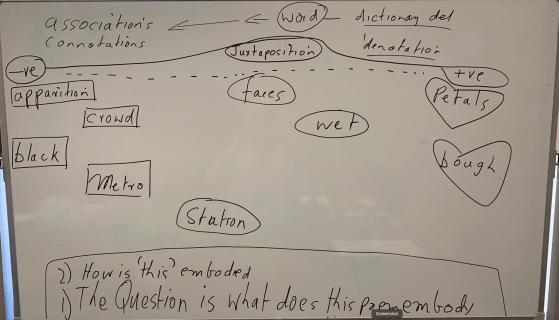 association's ← ← word — dictionary def
connotations
denotation
Juxtaposition
-ve
+ve
apparition
faces
Petals
crowd
wet
black
bough
Metro
Station
2) How is 'this' embodied
1) The Question is what does this poem embody
Screenshot